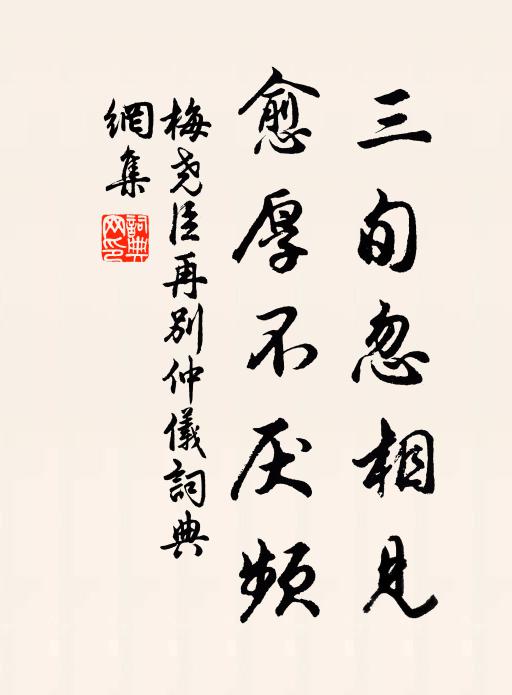 三旬忽相見
愈厚不厌頻
梅尧臣再别仲儀詞典
網集
詞典
网印